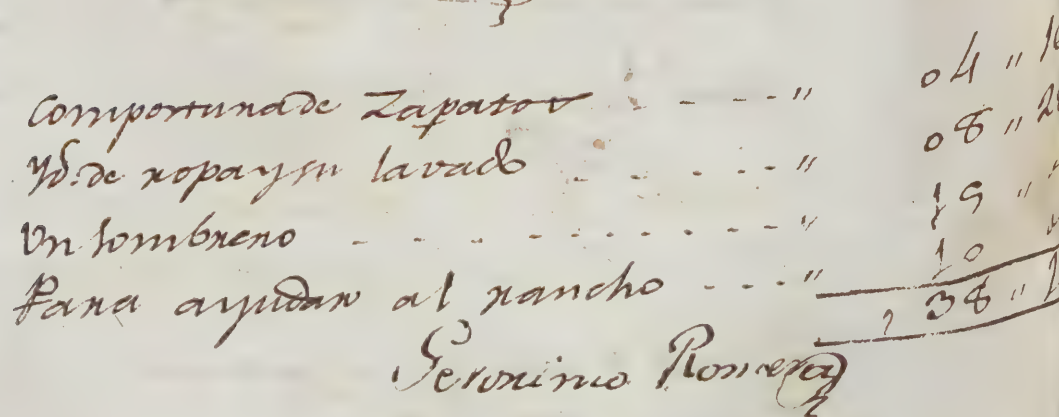 Comportuna de Zapatos - - - - " 04 "
Yd. de ropa y su lavado - - - - " 08 "
Un sombrero - - - - - - - - - " 15 "
Para ayudar al rancho - - - " 10
38 "
Geronimo Romera